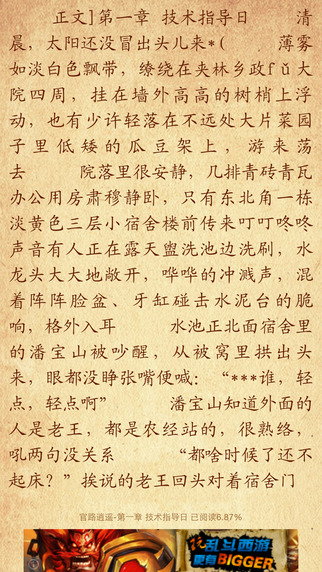 正文]第一章 技术指导日 清
晨，太阳还没冒出头儿来*( 薄雾
如淡白色飘带，缭绕在夹林乡政fǔ大
院四周，挂在墙外高高的树梢上浮
动，也有少许轻落在不远处大片菜园
子里低矮的瓜豆架上，游来荡
去 院落里很安静，几排青砖青瓦
办公用房肃穆静卧，只有东北角一栋
淡黄色三层小宿舍楼前传来叮叮咚咚
声音有人正在露天盥洗池边洗刷，水
龙头大大地敞开，哗哗的冲溅声，混
着阵阵脸盆、牙缸碰去水泥台的脆
响，格外入耳 水池正北面宿舍里
的潘宝山被吵醒，从被窝里拱出头
来，眼都没睁张嘴便喊：“***谁，轻
点，轻点啊” 潘宝山知道外面的
人是老王，都是农经站的，很熟络，
吼两句没关系 “都啥时候了还不
起床？”挨说的老王回头对着宿舍门
官路逍遥-第一章 技术指导日 已阅读6.87%
乱斗西游
更有BIGGER